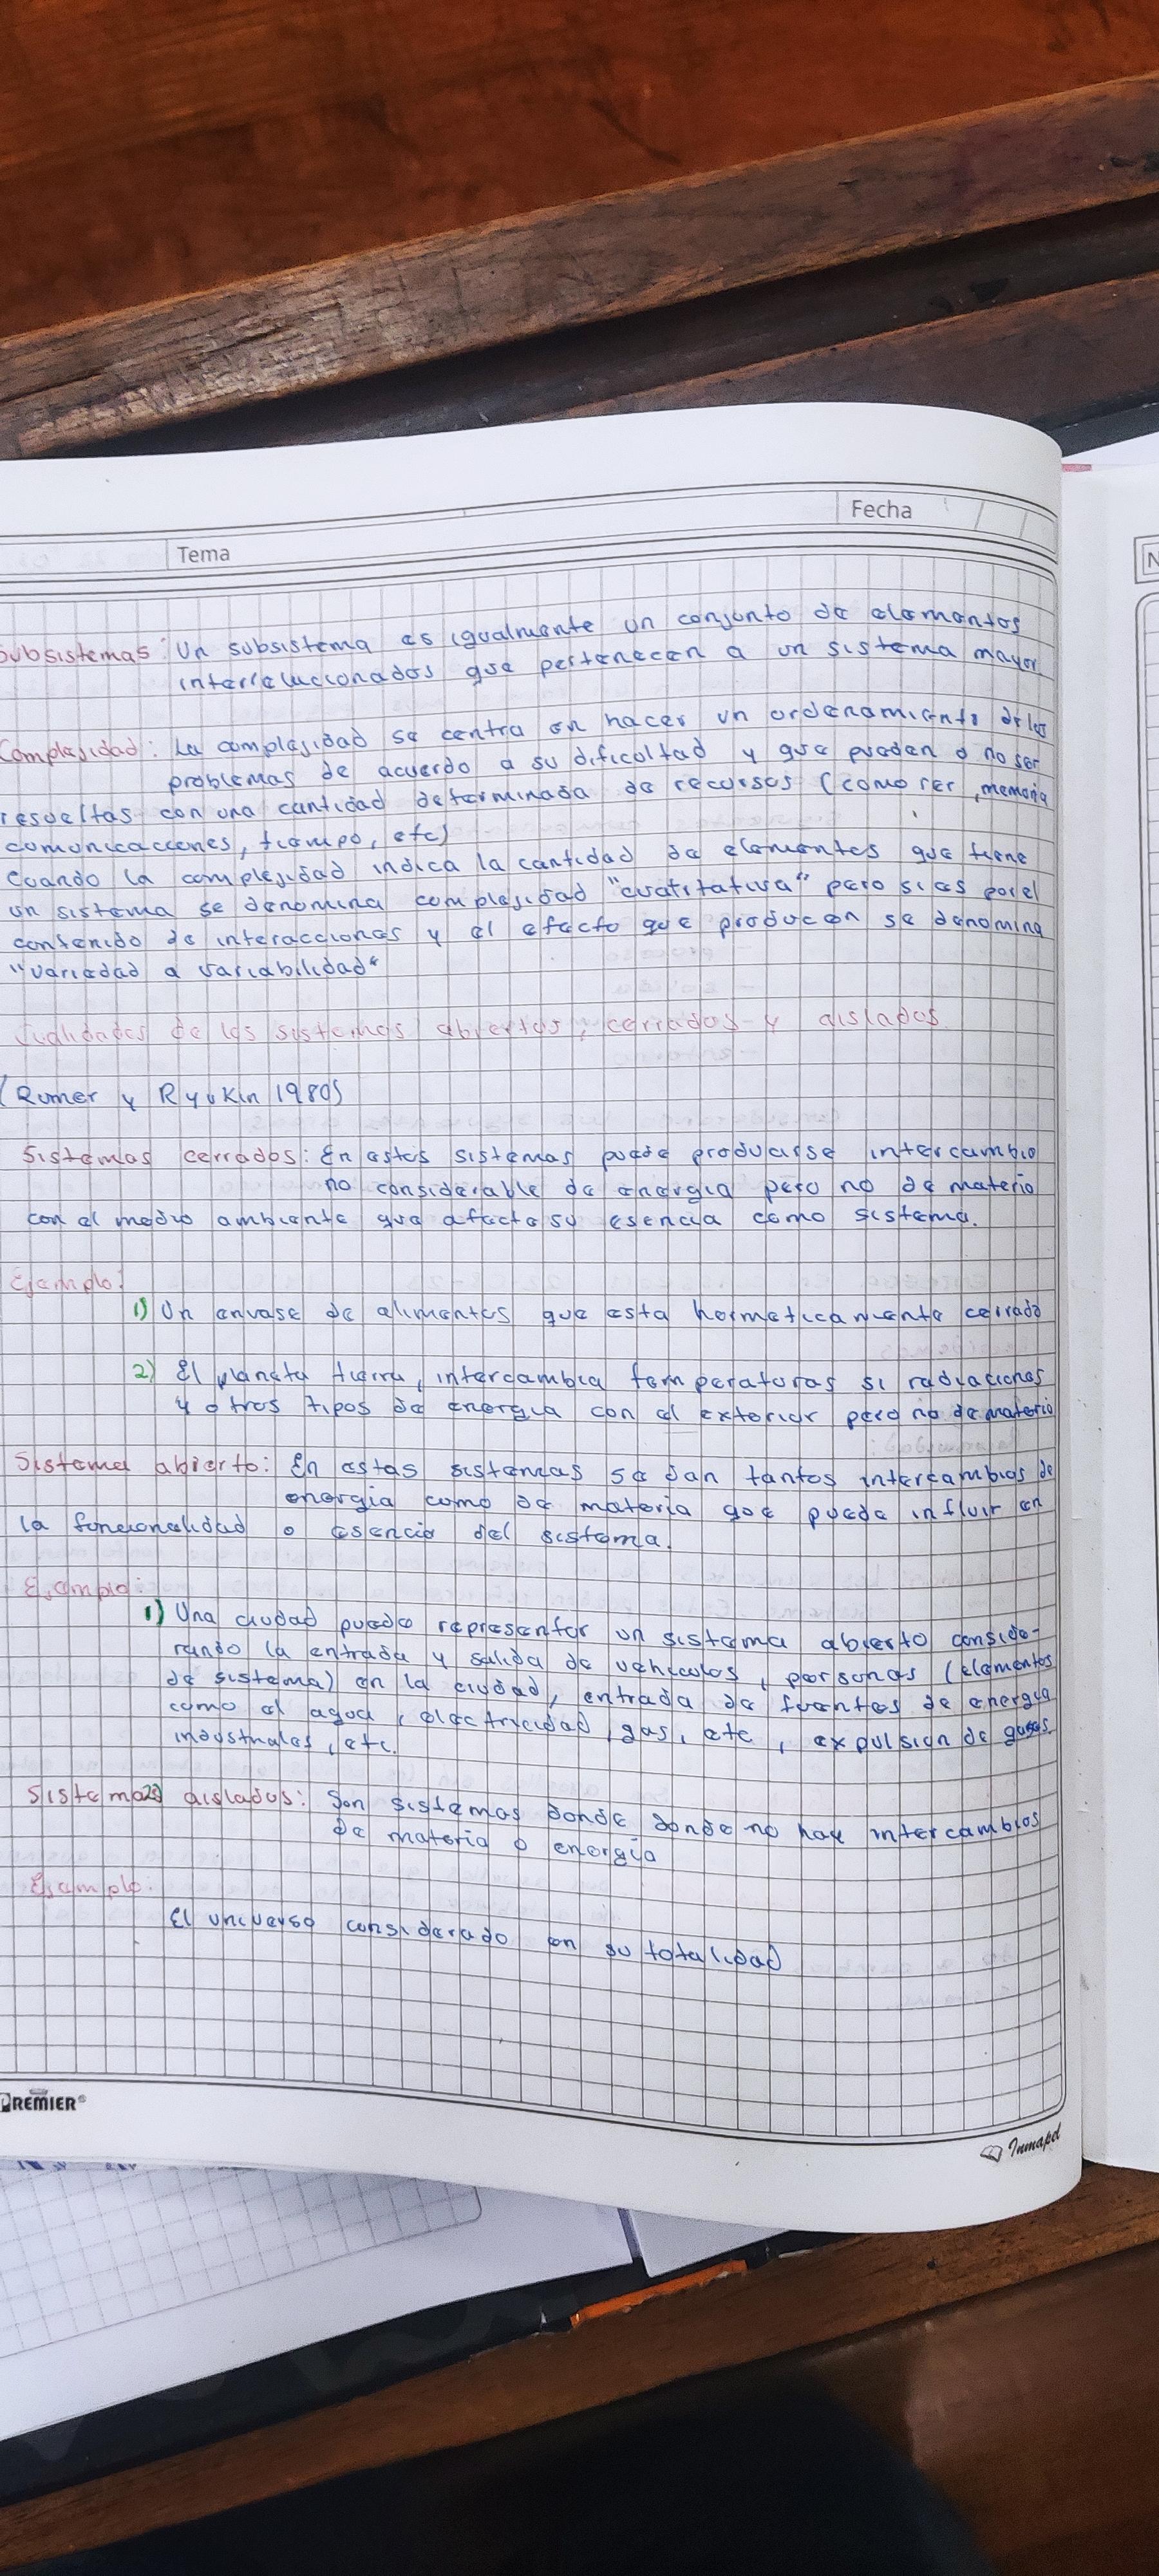 Fecha
Tema
Subsistemas: Un subsistema es igualmente un conjunto de elementos
interrelacionados que pertenecen a un sistema mayor.
Complejidad: La complejidad se centra en hacer un ordenamiento de los
problemas de acuerdo a su dificultad y que pueden o no ser
resueltas con una cantidad determinada de recursos (como ser, memoria
comunicacciones, tiempo, etc)
Cuando la complejidad indica la cantidad de elementos que tiene
un sistema se denomina complejidad "cuatitativa" pero si es por el
contenido de interacciones y el efecto que producen se denomina
"variedad a variabilidad"
Cualidades de los sistemas abiertos, cerrados y aislados
(Rumer y Ryvkin 1980)
Sistemas cerrados: En estos sistemas puede producirse intercambio
no considerable de energia pero no de materia
con el medio ambiente que afecta su esencia como sistema.
Ejemplo:
1) Un envase de alimentos que esta hermeticamente cerrado
2) El planeta tierra, intercambia temperaturas si radiaciones
y otros tipos de energia con el exterior pero no de materia
Sistema abierto: En estas sistemas se dan tantos intercambios de
energia como de materia que puede influir en
la funcionalidad o esencia del sistema.
Ejemplo:
1) Una ciudad puede representar un sistema abierto conside-
rando la entrada y salida de vehiculos, personas (elementos
de sistema) en la ciudad, entrada de fuentes de energia
como el agua, electricidad, gas, etc, expulsion de gases
industriales, etc.
Sistemas aislados: Son sistemas donde donde no hay intercambios
de materia o energia
Ejemplo:
El universo considerado en su totalidad
PREMIER®
Inmapel
N